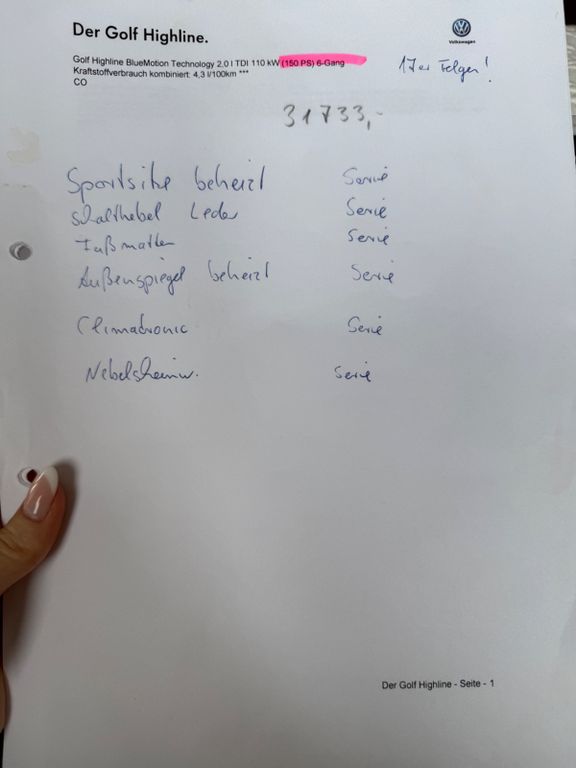 Der Golf Highline.
Volkswagen
Golf Highline BlueMotion Technology 2.0 l TDI 110 kW (150 PS) 6-Gang
17er Felgen!
Kraftstoffverbrauch kombiniert: 4,3 l/100km ***
CO
31733,-
Sportsitze beheizt Serie
Schalthebel Leder Serie
Fußmatten Serie
Außenspiegel beheizt Serie
Climatronic Serie
Nebelscheinw. Serie
Der Golf Highline - Seite - 1